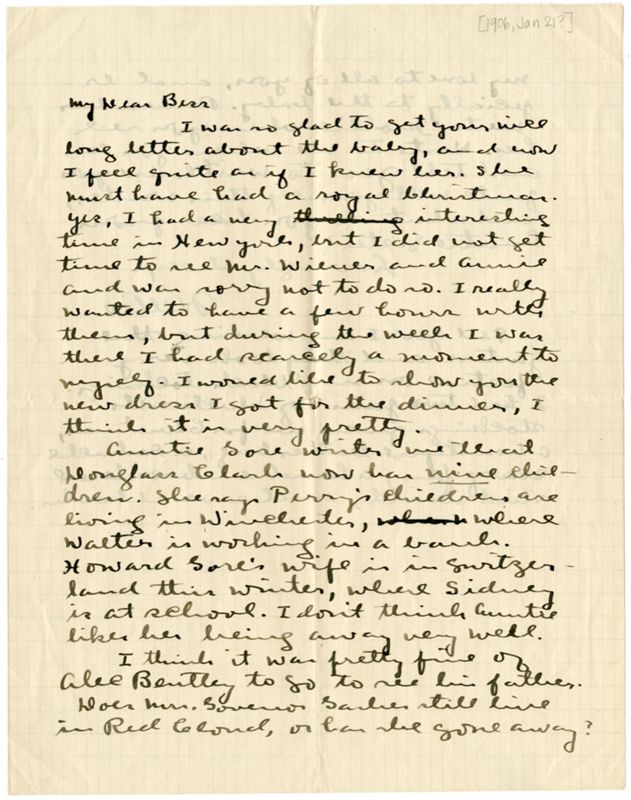 [1906, Jan 21?]
My Dear Bess
I was so glad to get your nice
long letter about the baby, and now
I feel quite as if I knew her. She
must have had a royal Christmas.
Yes, I had a very thrilling interesting
time in New York, but I did not get
time to see Mr. Wiener and Annie
and was sorry not to do so. I really
wanted to have a few hours with
them, but during the week I was
there I had scarcely a moment to
myself. I would like to show you the
new dress I got for the dinner, I
think it is very pretty.
Auntie Gore writes me that
Douglass Clark now has nine chil-
dren. She says Perry's children are
living in Winchester, when where
Walter is working in a bank.
Howard Gore's wife is in Switzer-
land this winter, where Sidney
is at school. I don't think Auntie
likes her being away very well.
I think it was pretty fine of
Alec Bentley to go to see his father.
Does Mrs. Govenor Garber still live
in Red Cloud, or has she gone away?